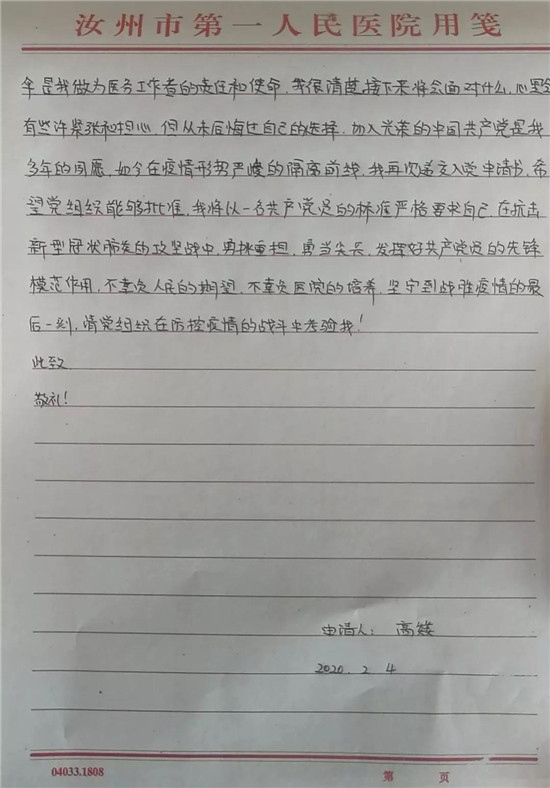 汝州市第一人民医院用笺
是我做为医务工作者的责任和使命,我很清楚接下来将会面对什么,心里
有些许紧张和担心,但从未后悔过自己的选择,加入光荣的中国共产党是我
多年的夙愿,如今在疫情形势严峻的隔离前线,我再次递交入党申请书,希
望党组织能够批准,我将以一名共产党员的标准严格要求自己,在抗击
新型冠状肺炎的攻坚战中,勇挑重担,勇当尖兵,发挥好共产党员的先锋
模范作用,不辜负人民的期望,不辜负医院的培养,坚守到战胜疫情的最
后一刻,请党组织在防控疫情的战斗中考验我!
此致
敬礼!
申请人: 高
2020. 2 4
04033.1808
第 页